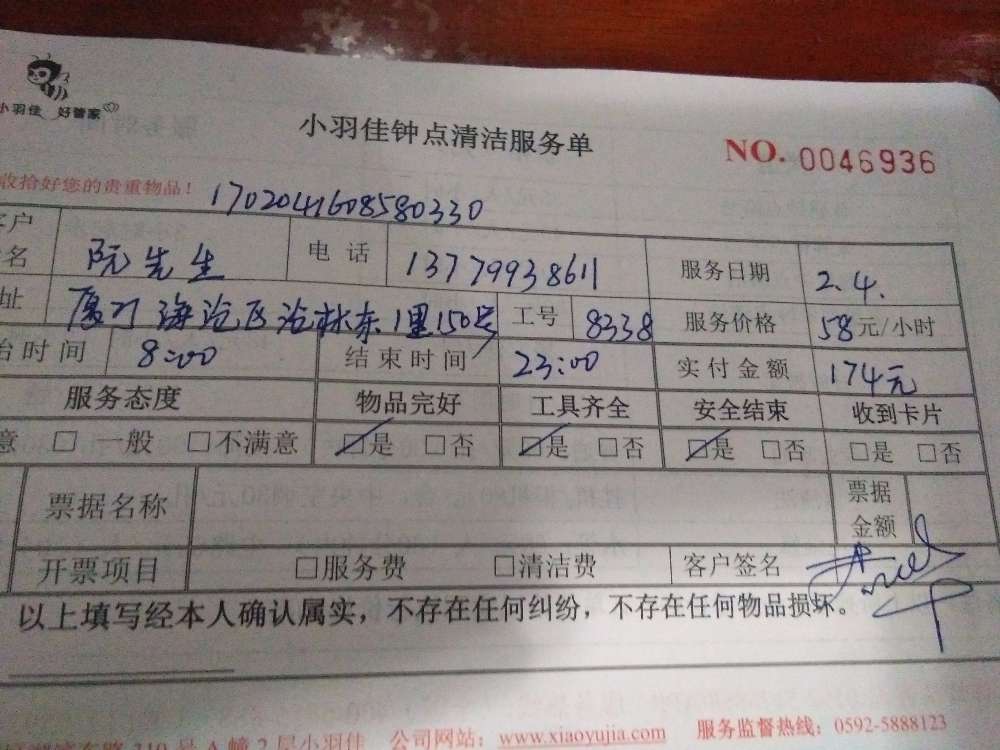 小羽佳 好管家
小羽佳钟点清洁服务单
NO. 0046936
收拾好您的贵重物品！
1702041608580330
客户 名 阮先生 电话 13779938611 服务日期 2.4.
址 厦门海沧区沧林东1里150号 工号 8338 服务价格 58元/小时
始时间 8:00 结束时间 23:00 实付金额 174元
服务态度 物品完好 工具齐全 安全结束 收到卡片
意 □一般 □不满意 ☑是 □否 ☑是 □否 ☑是 □否 □是 □否
票据名称 票据金额
开票项目 □服务费 □清洁费 客户签名
以上填写经本人确认属实，不存在任何纠纷，不存在任何物品损坏。
310号A幢2层小羽佳 公司网站：www.xiaoyujia.com 服务监督热线：0592-5888123